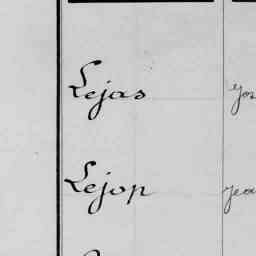 Lejas
Lejop